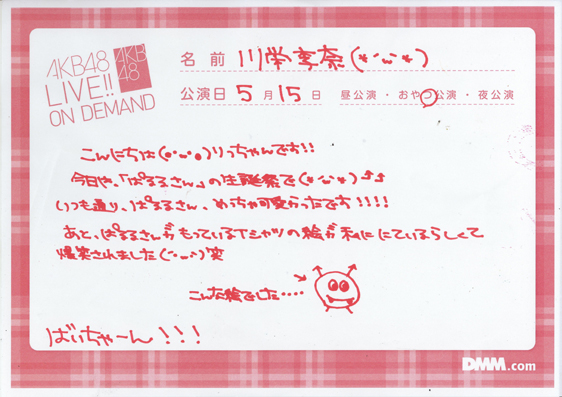 AKB48
LIVE!!
ON DEMAND
AKB
48
名前 川栄李奈(*´ω`*)
公演日 5月15日 昼公演・おやつ公演・夜公演
こんにちは(●´ω`●)りっちゃんです!!
今日は、「ぱるるさん」の生誕祭で(*´ω`*)♪♪
いつも通り、ぱるるさん、めっちゃ可愛かったです!!!!
あと、ぱるるさんがもっているTシャツの絵が私ににているらしくて
爆笑されました(´・ω・`)笑
こんな絵でした‥‥
ばいちゃーん!!!
DMM.com